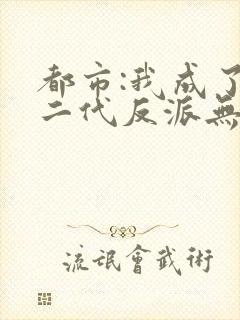 都市:我成了
二代反派無
流氓會武術